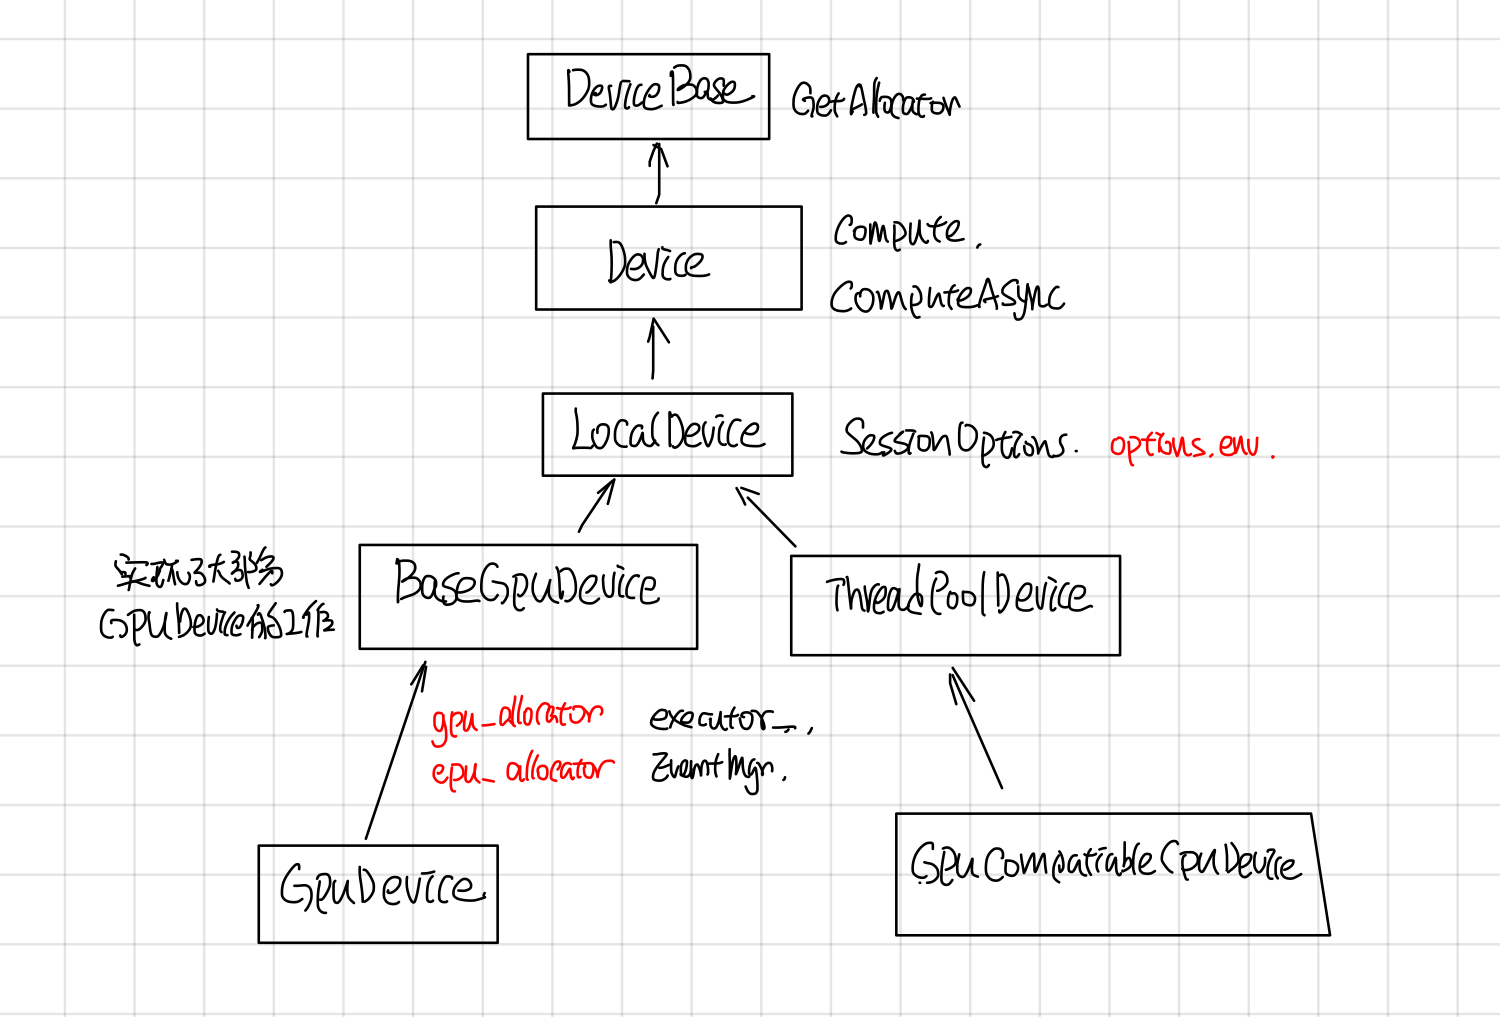 DeviceBase
GetAllocator
Device
Compute.
ComputeASync
LocalDevice
SessionOptions. options.env.
实现了大部分
GPUDevice的工作
BaseGpuDevice
ThreadPoolDevice
gpu_allocator executor_,
cpu_allocator EventMgr.
GpuDevice
GpuCompatiableCpuDevice